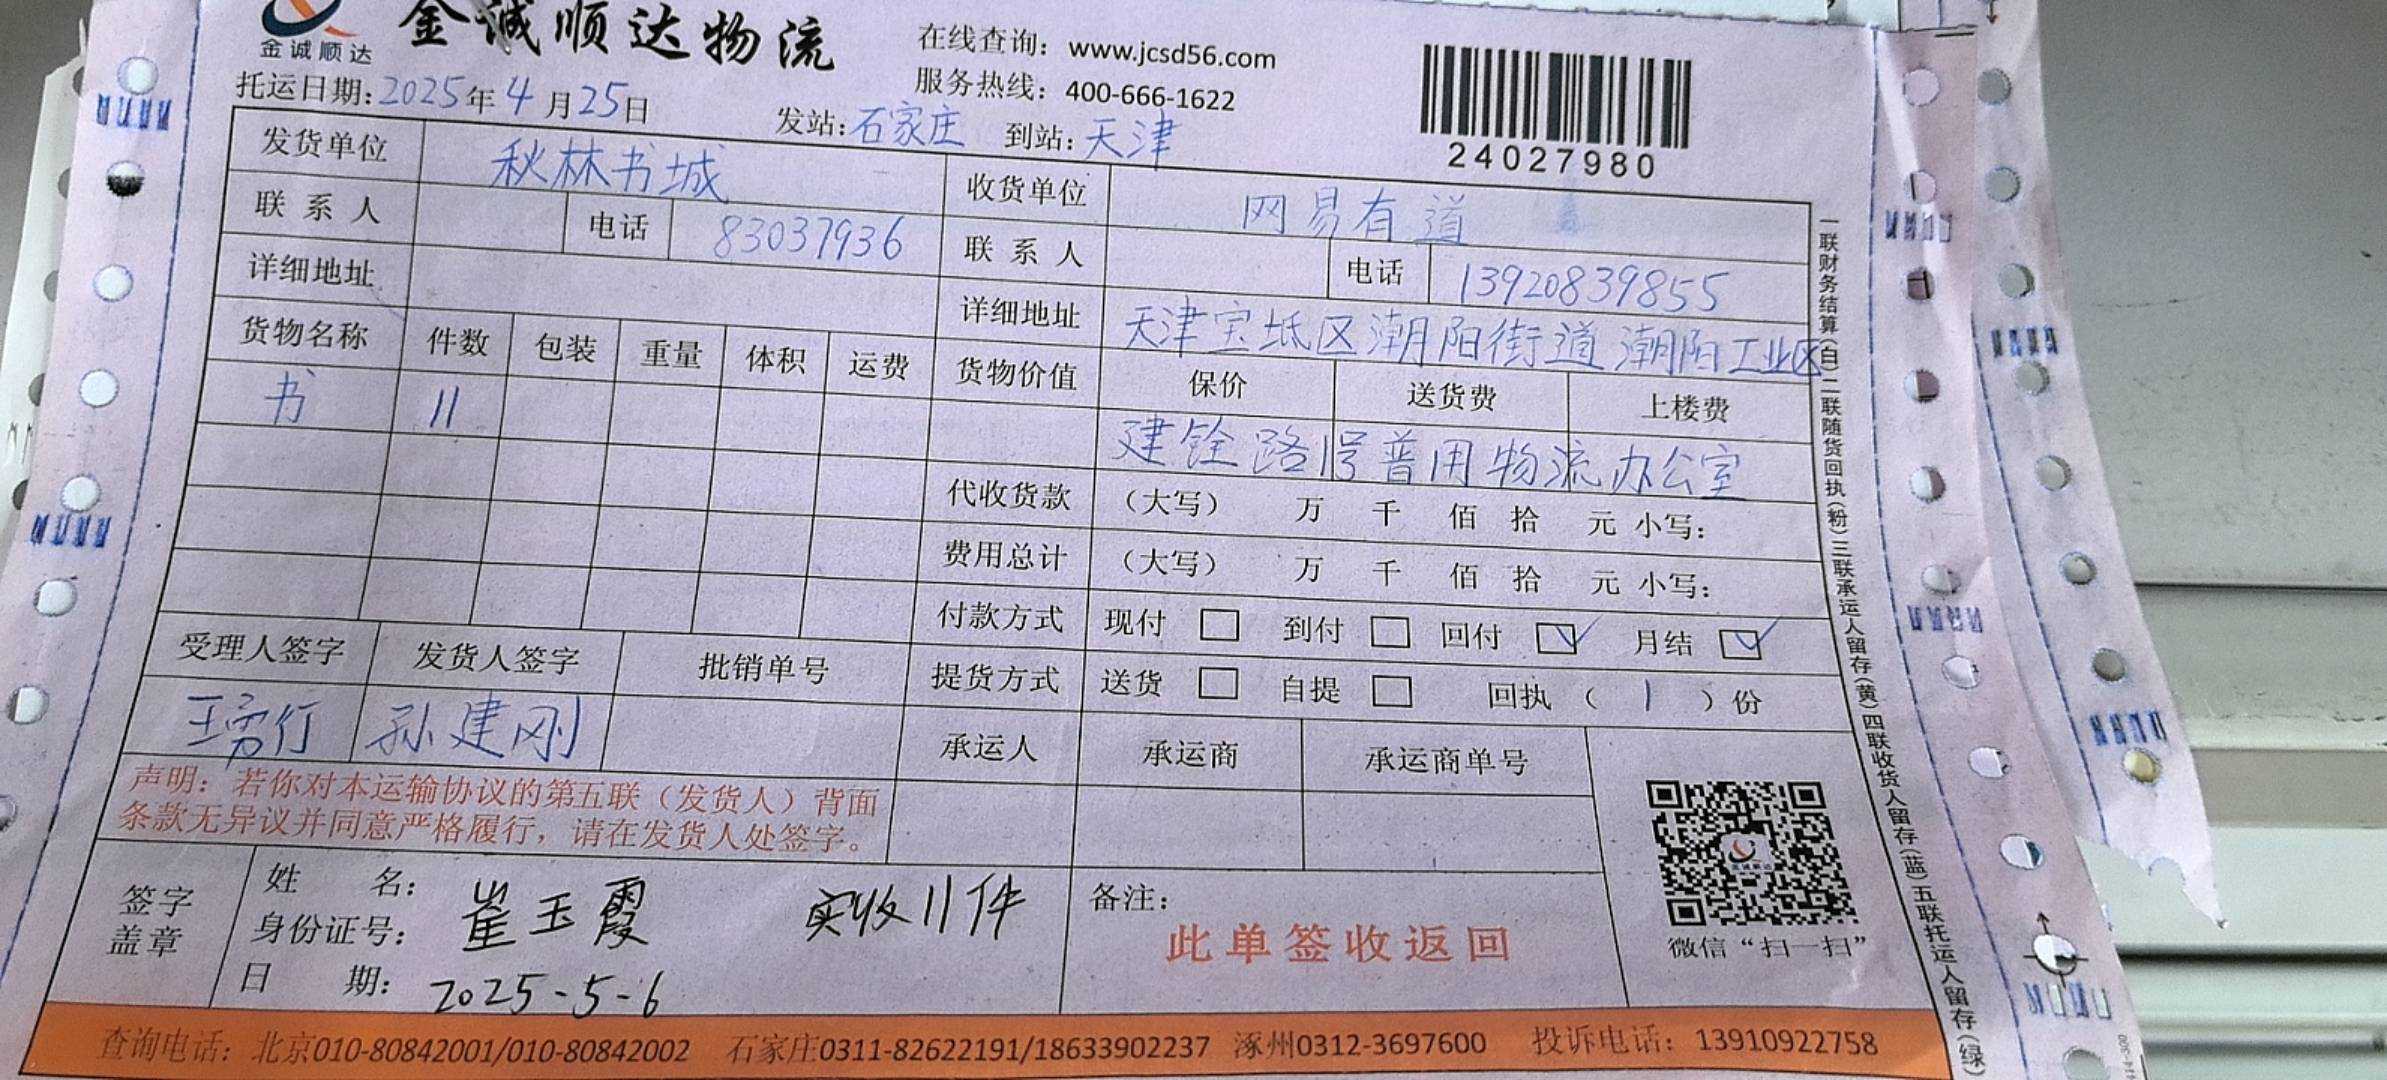 金诚顺达 金诚顺达物流
在线查询：www.jcsd56.com
服务热线：400-666-1622
24027980
托运日期:2025年4月25日 发站:石家庄 到站:天津
发货单位 秋林书城 收货单位 网易有道
联系人 电话 83037936 联系人 电话 13920839855
详细地址 详细地址 天津宝坻区潮阳街道潮阳工业区
货物名称 件数 包装 重量 体积 运费 货物价值 保价 送货费 上楼费
书 11 建铨路1号普用物流办公室
代收货款 （大写） 万 千 佰 拾 元 小写：
费用总计 （大写） 万 千 佰 拾 元 小写：
付款方式 现付 到付 回付 月结
受理人签字 发货人签字 批销单号 提货方式 送货 自提 回执（ 1 ）份
孙建刚 承运人 承运商 承运商单号
声明：若你对本运输协议的第五联（发货人）背面
条款无异议并同意严格履行，请在发货人处签字。
签字
盖章
姓 名： 崔玉霞 实收11件
身份证号：
日 期： 2025-5-6
备注：
此单签收返回
微信“扫一扫”
一联财务结算(白)二联随货回执(粉)三联承运人留存(黄)四联收货人留存(蓝)五联托运人留存(绿)
查询电话：北京010-80842001/010-80842002 石家庄0311-82622191/18633902237 涿州0312-3697600 投诉电话：13910922758